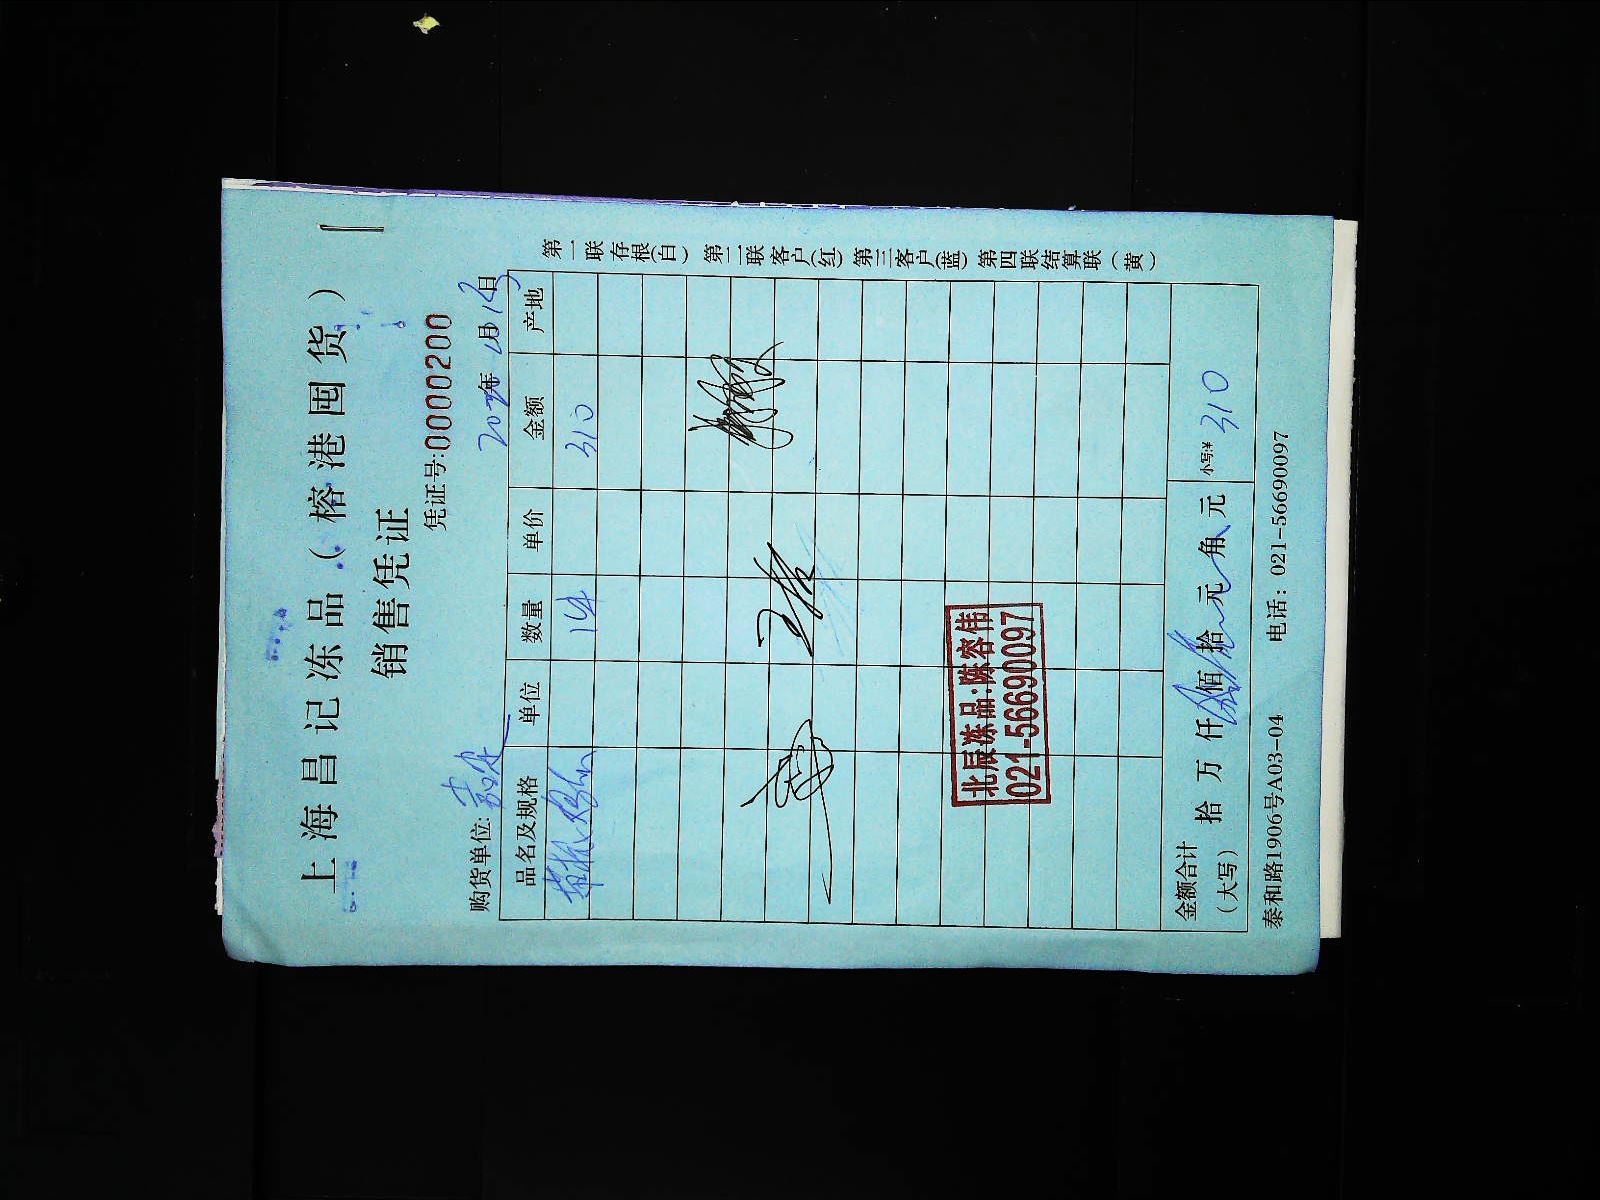 上海昌记冻品（榕港囤货）
销售凭证
凭证号:0000200
购货单位: 年 月 日
品名及规格 单位 数量 单价 金额 产地
310
第一联存根(白) 第二联客户(红) 第三客户(蓝) 第四联结算联(黄)
北辰冻品:陈容伟
021-56690097
金额合计
（大写） 拾 万 仟 佰 拾 元 角 元 小写:¥ 310
泰和路1906号A03-04 电话: 021-56690097